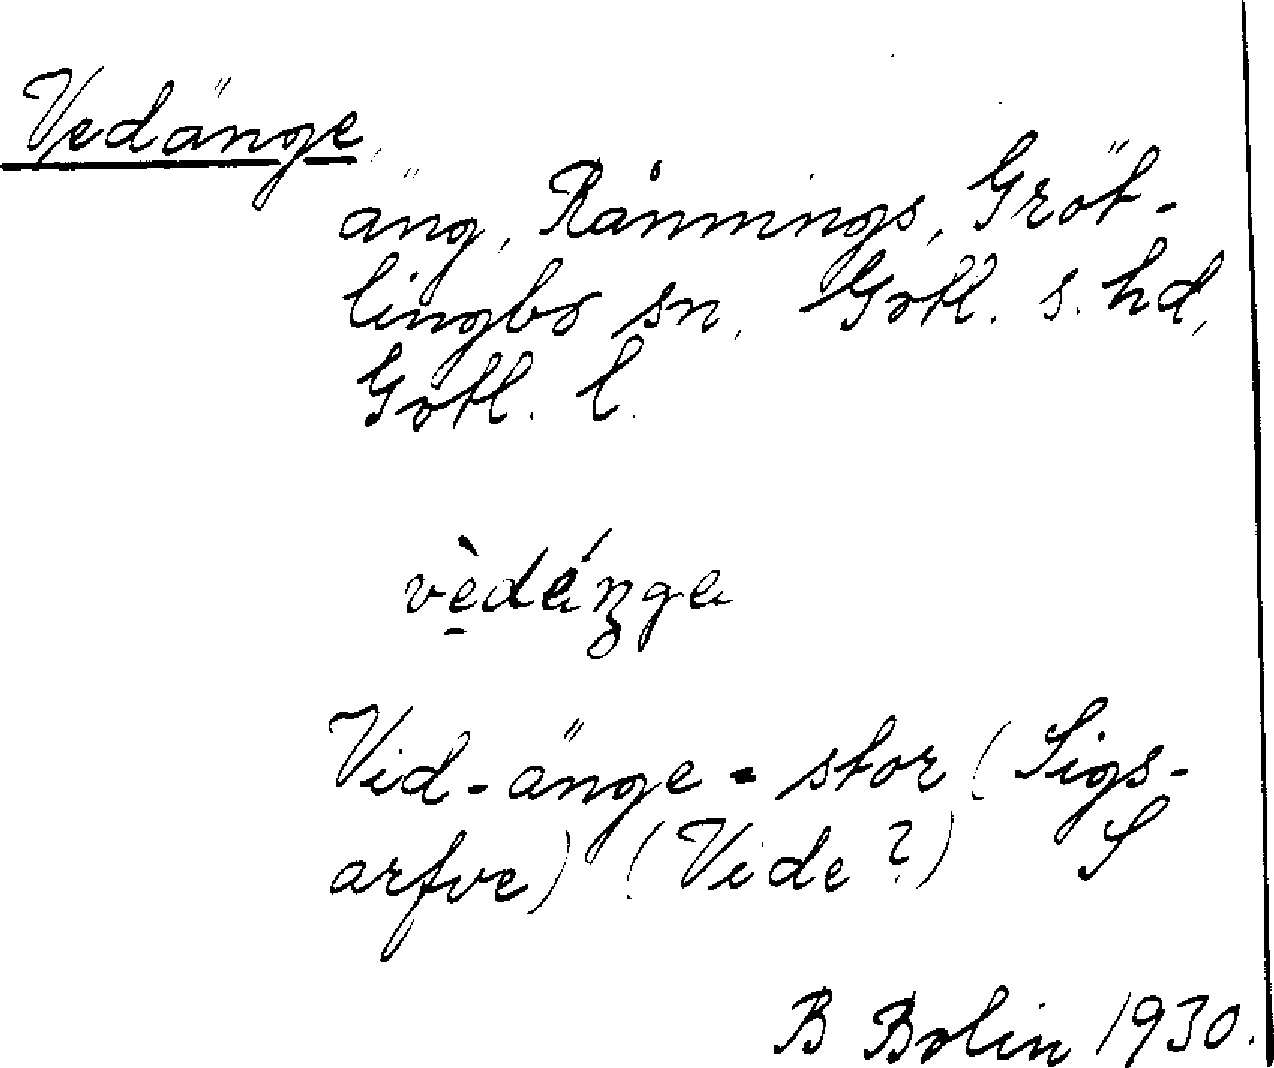 Vedänge,
äng, Rånnings, Gröt-
lingbo sn, Gotl. s. hd,
Gotl. l.
vèdä́ŋgä
Vid-änge - stor (Sigs-
arfve) (Vide?) S
B Bolin 1930.